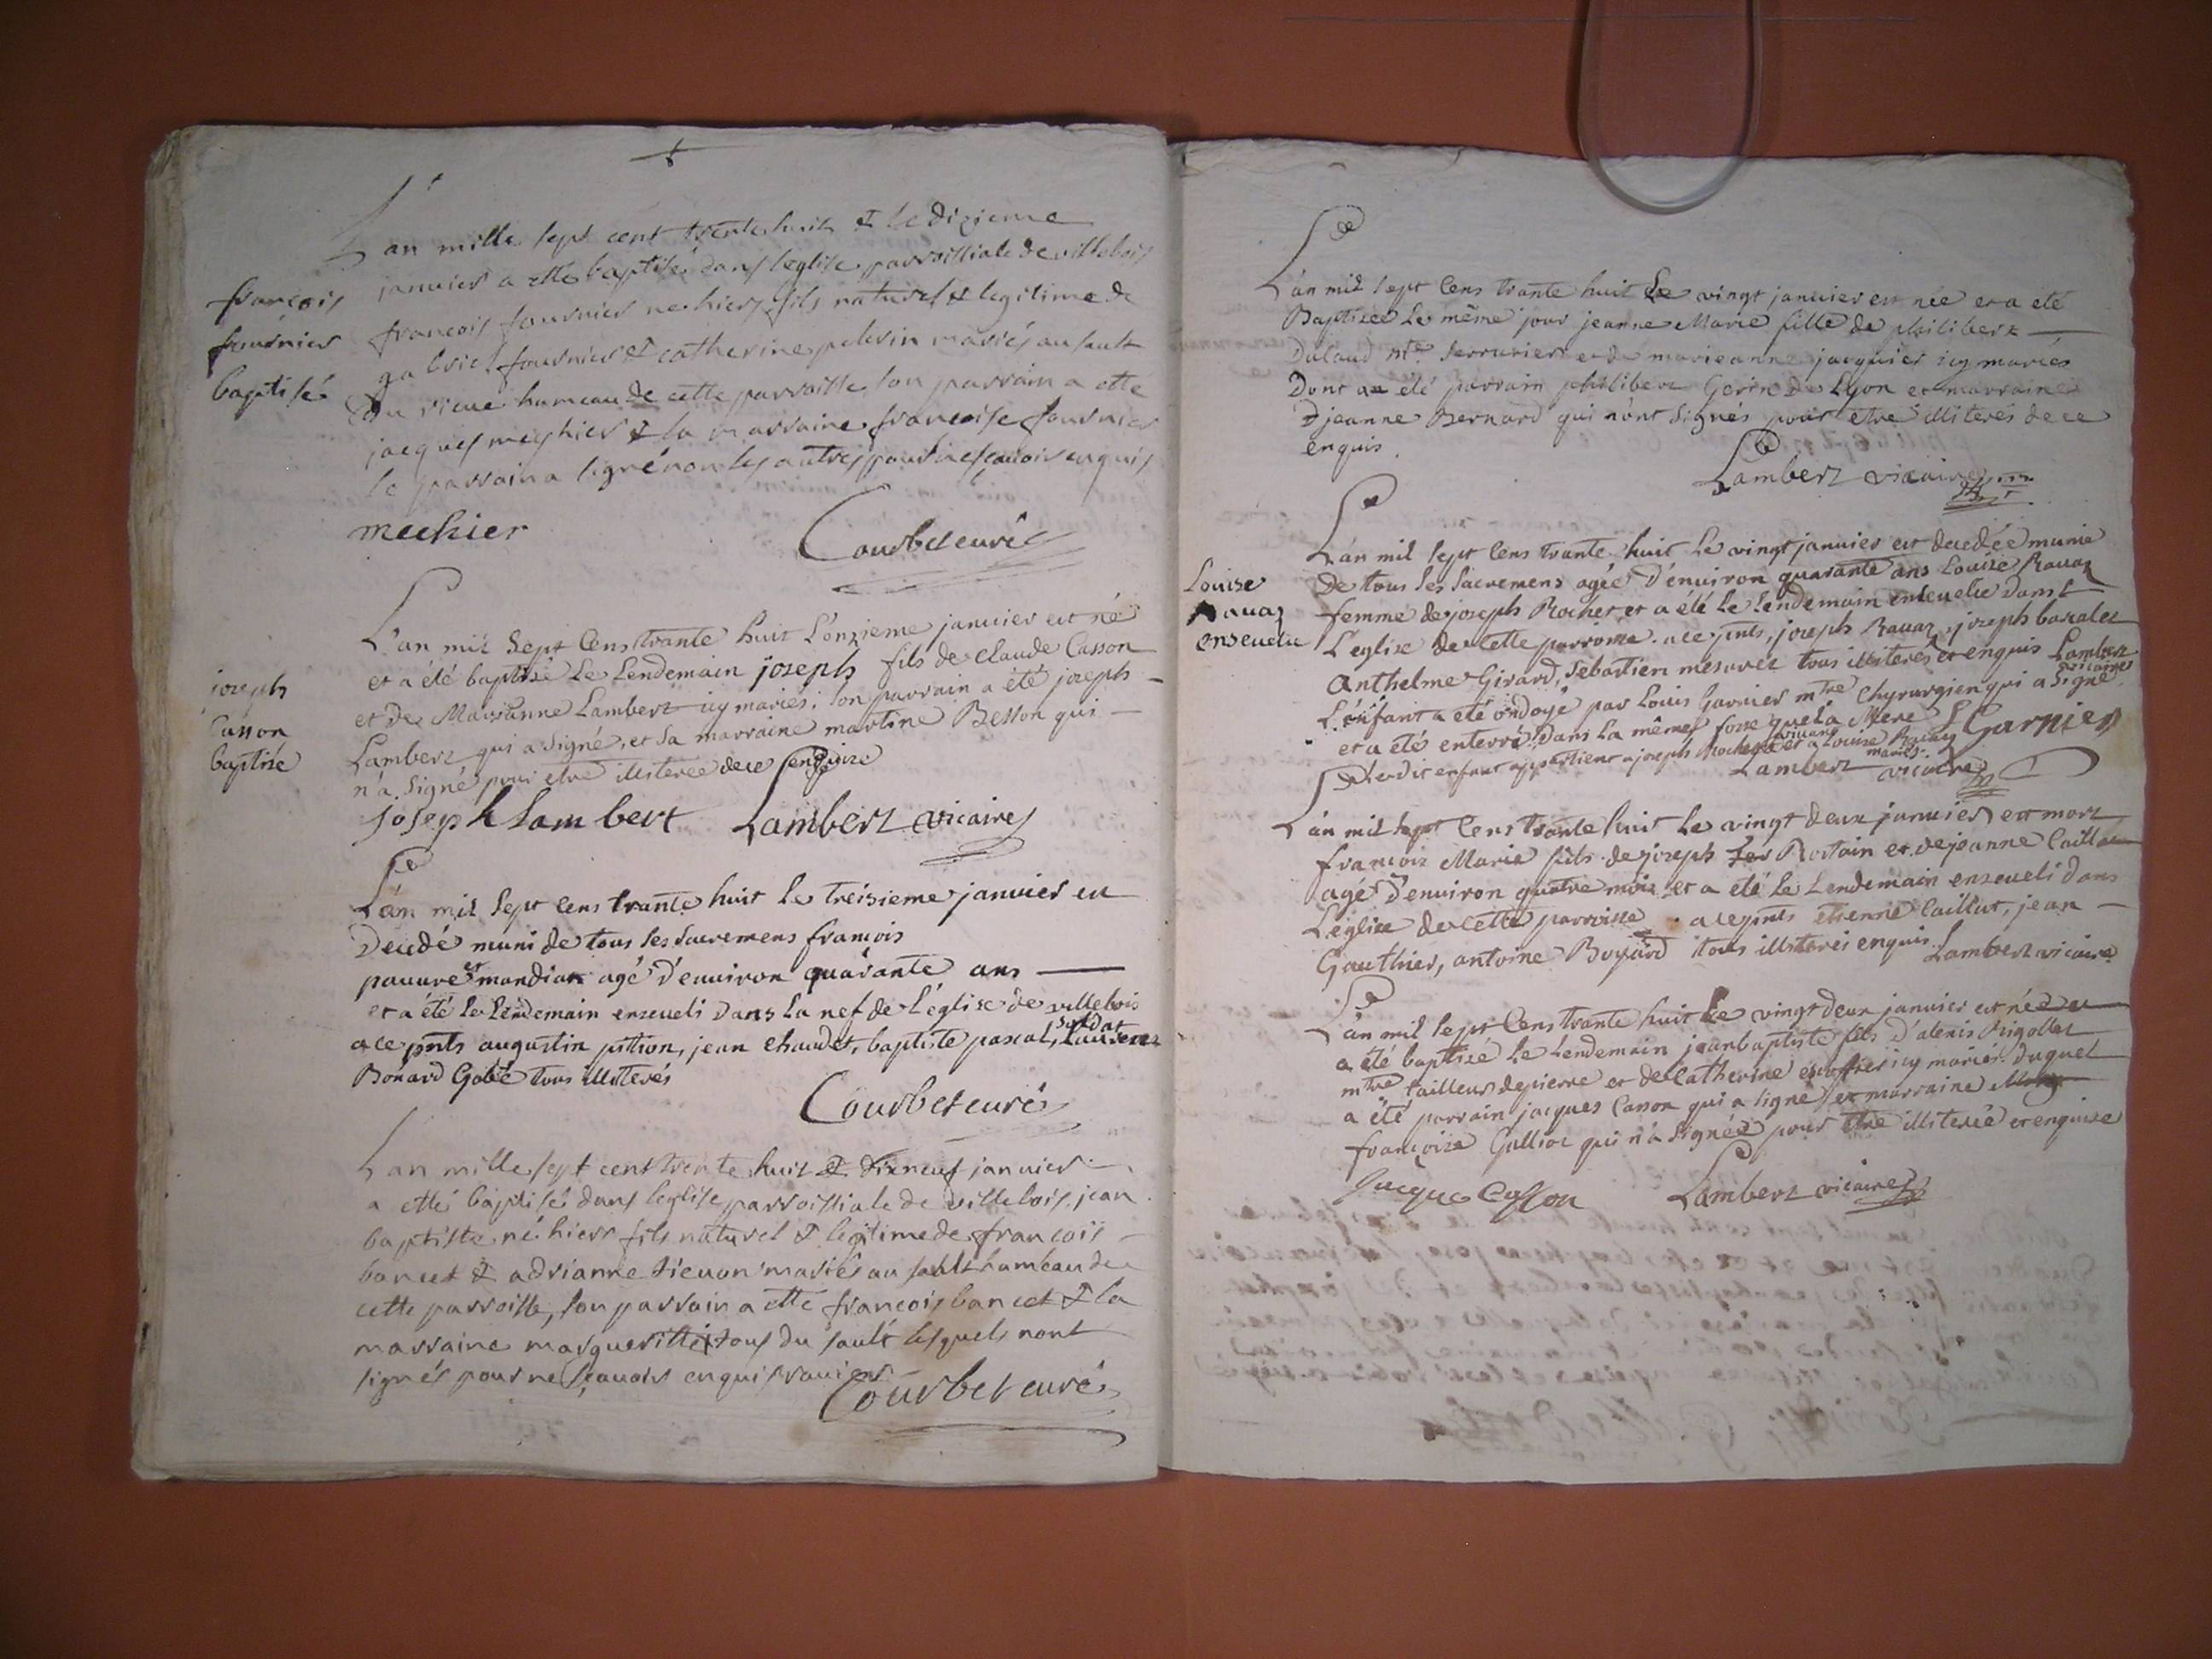 L'an mille sept cent trente huit & le dizieme
janvier a etté baptisé dans leglise parroissiale de villebois
françois fournier ne hiers fils naturel & legitime de
gabriel fournier & catherine pelerin mariés au sault
hameau de cette parroisse son parrain a etté
jacques meyhier & la marraine françoise fournier
le parrain a signé non les autres pour ne sçavoir enquis
françois
fournier
baptisé
mechier
Courbet curé
L'an mil sept cens trante huit L'onzieme janvier est né
et a été baptisé Le Lendemain joseph fils de claude Casson
et de Marianne Lambert icy mariés; son parrain a été joseph
Lambert qui a signé, et sa marraine martine Besson qui
n'a signé pour etre illiterée de ce enquise
joseph
Casson
baptisé
Joseph Lambert Lambert vicaire
L'an mil sept cens trante huit le treisieme janvier est
Decedé muni de tous les Sacremens françois
pauvre mandiant agé d'environ quarante ans
et a été Le Lendemain enseveli Dans La nef de L'église de villebois
a ce pnts augustin pition, jean chaudet, baptiste pascal,
Bonard Gobé tous illiterés
Courbet curé
L'an mille sept cent trente huit & dixneuf janvier
a etté baptisé dans leglise parroissiale de villebois, jean
baptiste né hiers fils naturel & legitime de françois
bancet & adrianne tievon mariés au sault hameau de
cette parroisse, son parrain a etté françois bancet & la
marraine tous du sault lesquels nont
signés pour ne sçavoir enquis
Courbet curé
L'an mil sept Cens trante huit Le vingt janvier est née et a été
Baptisée Le même jour jeanne Marie fille de philibert
Dulaud mtre serrurier et de marieanne jacquier icy mariés
Dont a été parrain philibert Gerin de Lyon et marraine
jeanne Bernard qui n'ont signés pour etre illiterés de ce
enquis
Lambert vicaire
L'an mil sept Cens trante huit Le vingt janvier est decedée munie
De tous les Sacremens agée D'environ quarante ans Louise Ravaz
femme de joseph Rocher et a été Le lendemain ensevelie Dans
L'eglise de Cette parroisse. a ce pnts, joseph Ravaz, joseph
Anthelme Girard, Sebastien mesuret tous illiterés et enquis Lambert
vicaire
Louise
Ravaz
ensevelie
L'enfant a été ondoyé par Louis Garnier mtre Chyrurgien qui a Signé
et a été enterré Dans La même fosse que La Mere L Garnier
Ledit enfant appartient a joseph Rocher et a Louise Ravaz
mariés
Lambert vicaire
L'an mil sept Cens trante huit Le vingt deux janvier est mort
françois Marie fils de joseph Rostain et de jeanne Caillat
agé D'environ quatre mois et a été Le Lendemain enseveli Dans
L'église de Cette parroisse a ce pnts etienne Caillat, jean
Gauthier, antoine Buyard tous illiterés enquis. Lambert vicaire
L'an mil sept Cens trante huit Le vingt deux janvier est né et
a été baptisé Le Lendemain jeanbaptiste fils D'alexis Rigollet
mtre tailleur de pierre et de Catherine escoffier icy mariés. duquel
a été parrain jacques Casson qui a signé et marraine
françoise Gulliot qui n'a Signée pour etre illiterée et enquise
Jacque Casson Lambert vicaire